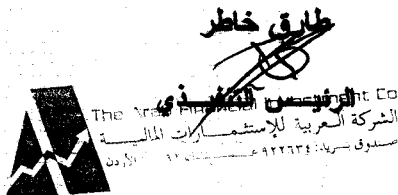 طارق خاطر
الرئيس التنفيذي
The Arab Financial Investment Co
الشركة العربية للإستثمارات المالية
صندوق بريد: ٩٢٢٦٣٤ الأردن